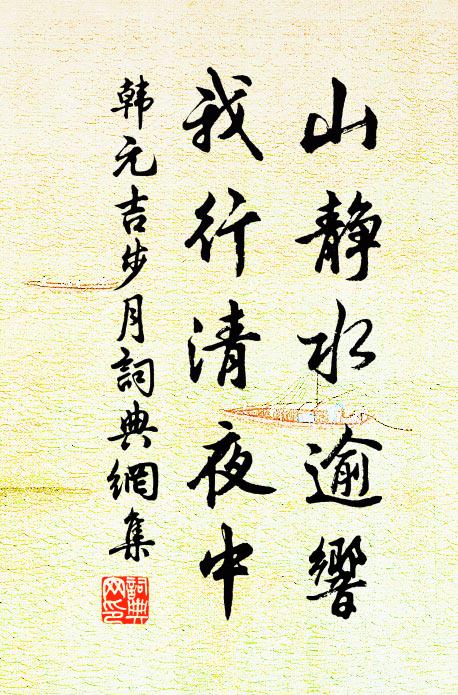 山静水逾響
我行清夜中
韩元吉步月詞典網集
詞典网印